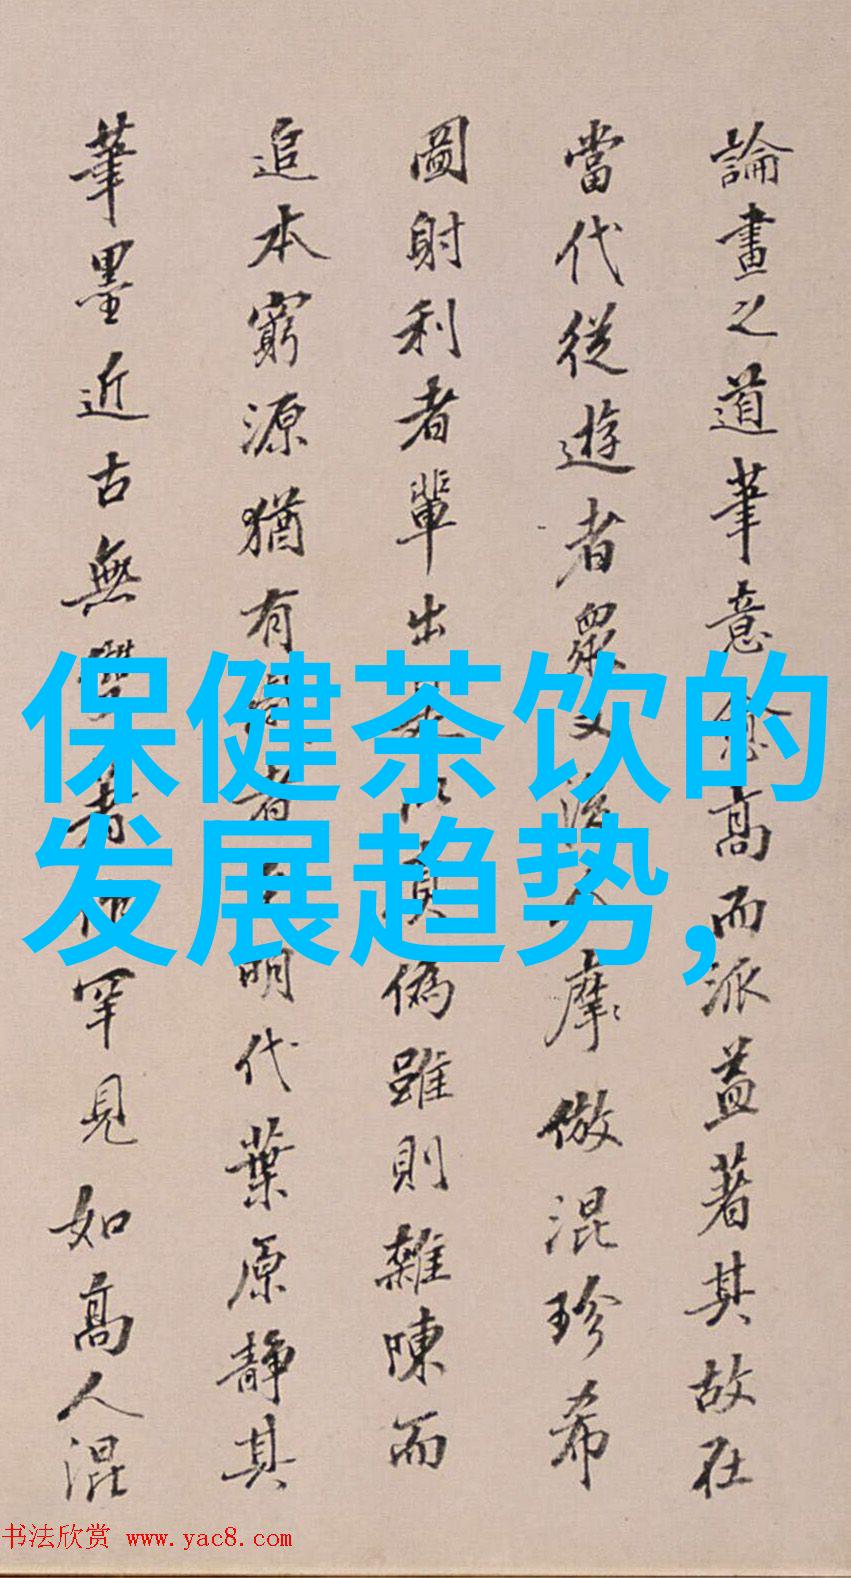 論畫之道筆意愈高而派益著其故在
當代從遊者眾又後人摩倣混珍希
圖射利者輩出是以真偽雖則雜陳而
追本窮源猶有識者至明代葉原靜其
筆墨近古無學者仰罕見如高人混
保健茶饮的
发展趋势,
书法欣赏 www.yac8.com